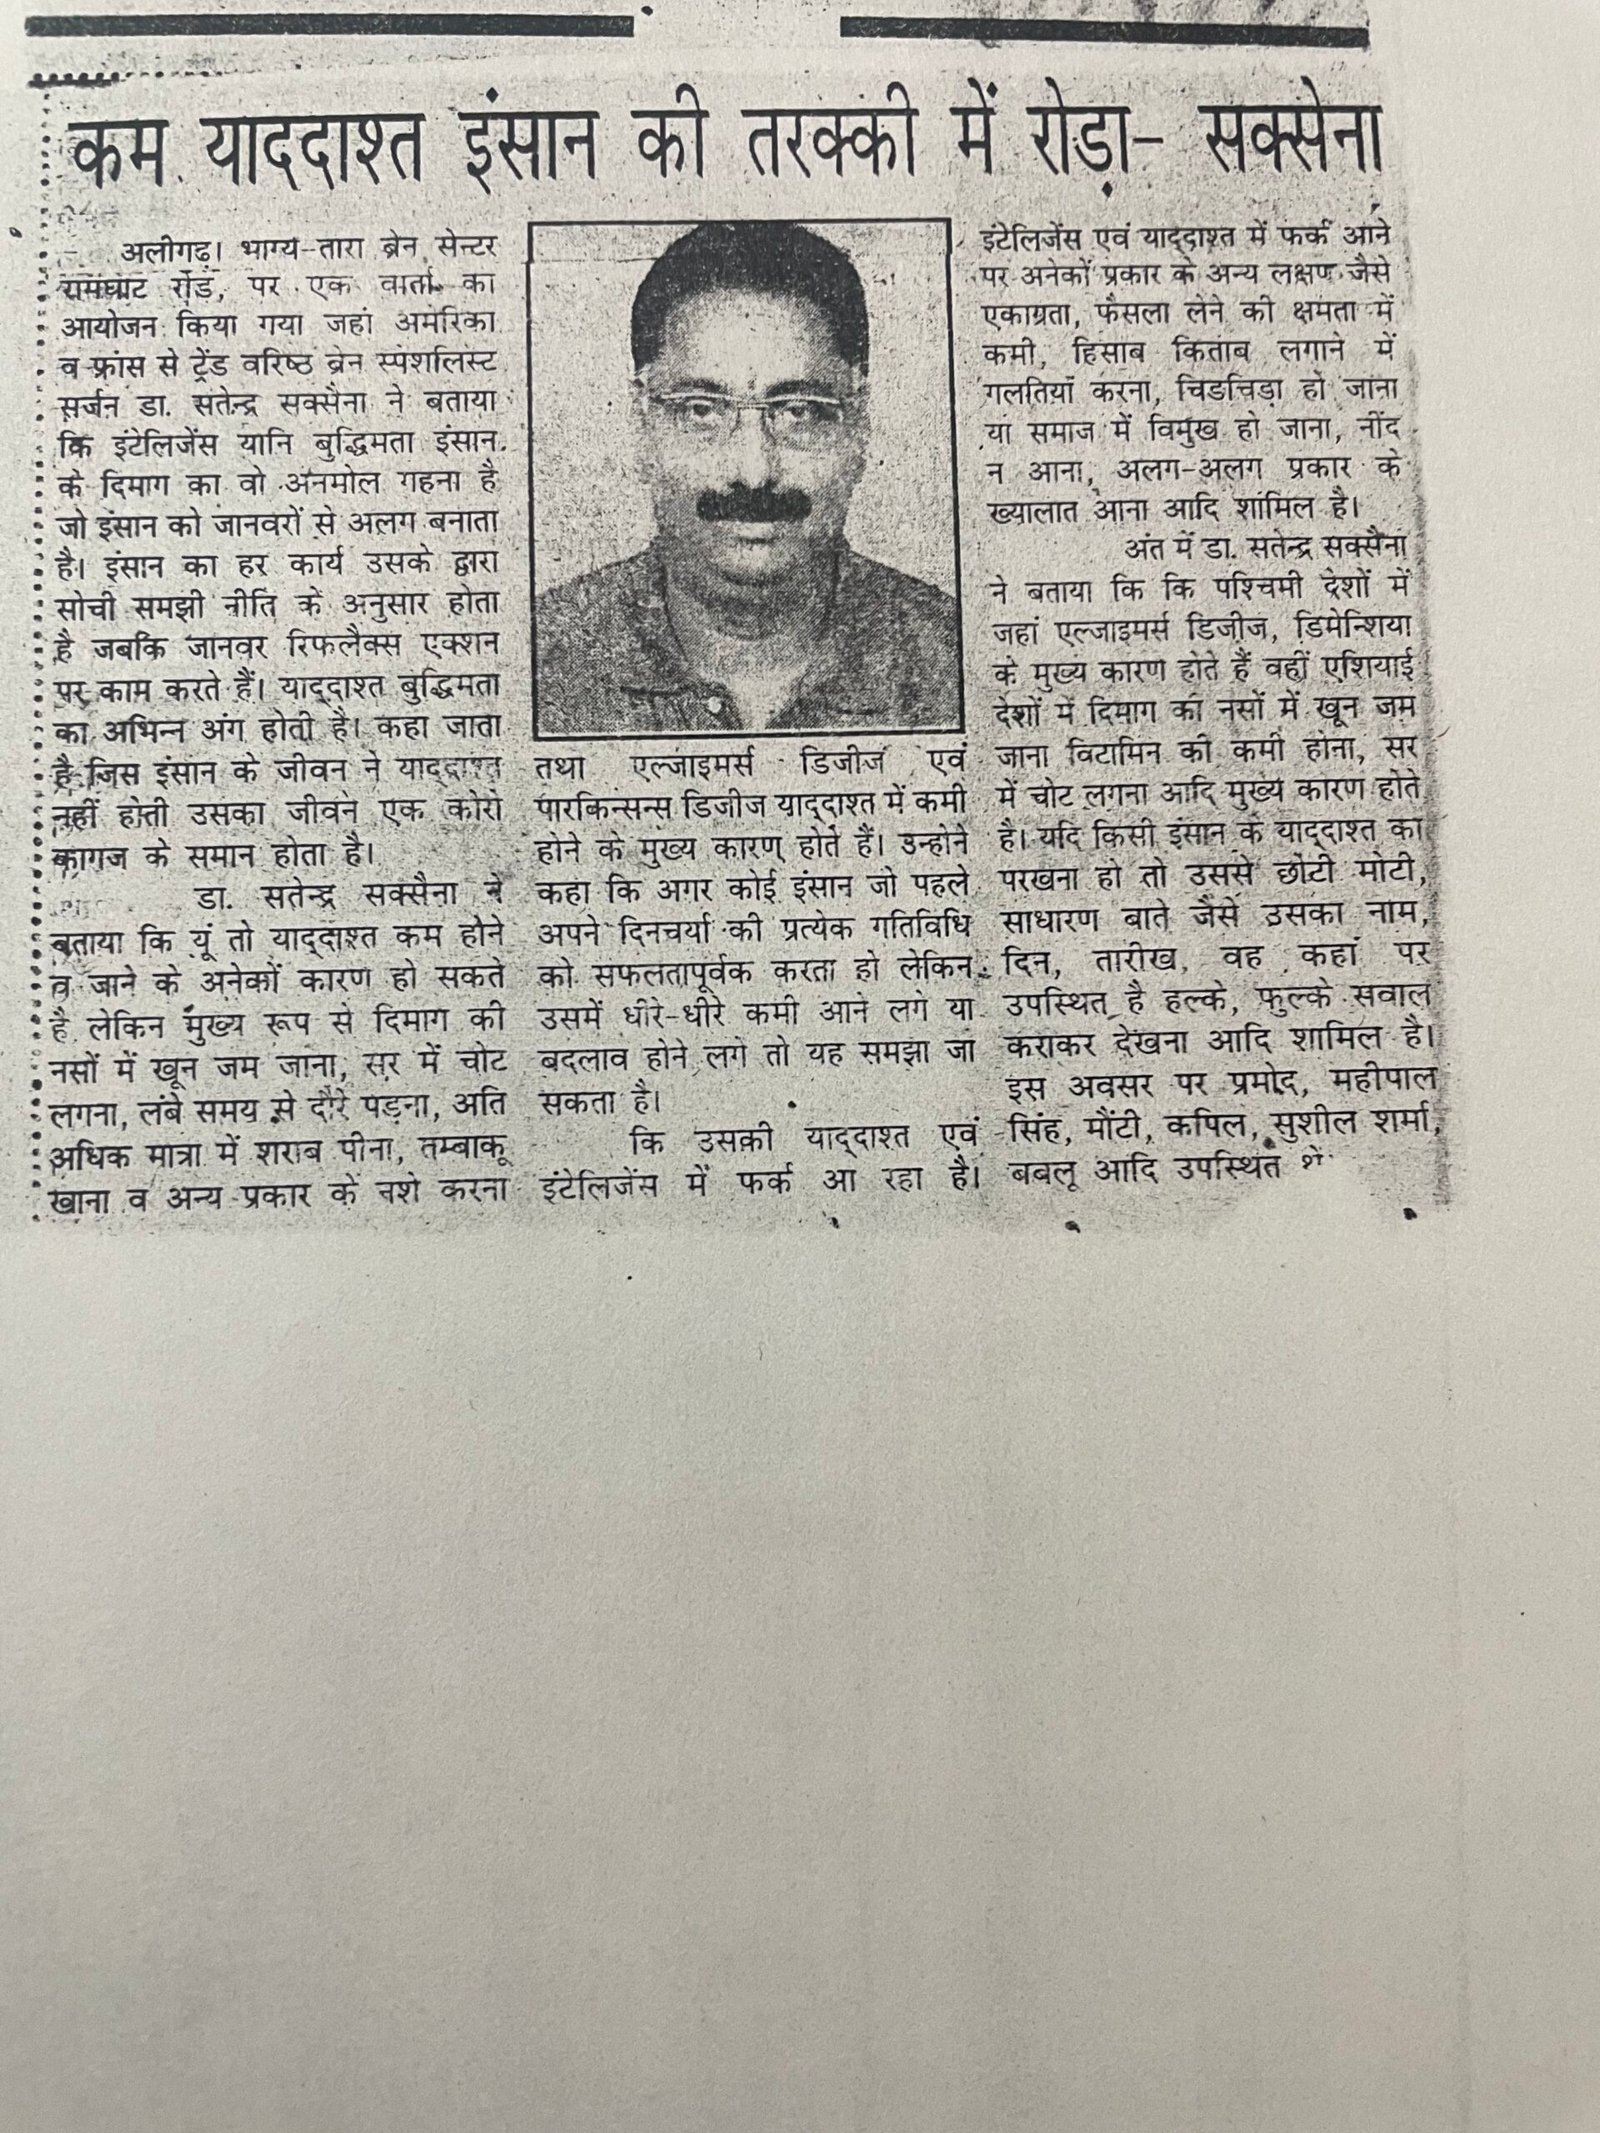 कम याददाश्त इंसान की तरक्की में रोड़ा- सक्सेना
अलीगढ़। भाग्य-तारा ब्रेन सेन्टर
रामघाट रोड, पर एक वार्ता का
आयोजन किया गया जहां अमेरिका
व फ्रांस से ट्रेंड वरिष्ठ ब्रेन स्पेशलिस्ट
सर्जन डा. सतेन्द्र सक्सैना ने बताया
कि इंटेलिजेंस यानि बुद्धिमता इंसान
के दिमाग का वो अनमोल गहना है
जो इंसान को जानवरों से अलग बनाता
है। इंसान का हर कार्य उसके द्वारा
सोची समझी नीति के अनुसार होता
है जबकि जानवर रिफलैक्स एक्शन
पर काम करते हैं। याद्‌दाश्त बुद्धिमता
का अभिन्न अंग होती है। कहा जाता
है जिस इंसान के जीवन ने याद्‌दाश्त
नहीं होती उसका जीवन एक कोरो
कागज के समान होता है।
डा. सतेन्द्र सक्सैना ने
बताया कि यूं तो याद्‌दाश्त कम होने
व जाने के अनेकों कारण हो सकते
है लेकिन मुख्य रूप से दिमाग की
नसों में खून जम जाना, सर में चोट
लगना, लंबे समय से दौरे पड़ना, अति
अधिक मात्रा में शराब पीना, तम्बाकू
खाना व अन्य प्रकार के नशे करना
तथा एल्जाइमर्स डिजीज एवं
पारकिन्सन्स डिजीज याद्‌दाश्त में कमी
होने के मुख्य कारण होते हैं। उन्होने
कहा कि अगर कोई इंसान जो पहले
अपने दिनचर्या की प्रत्येक गतिविधि
को सफलतापूर्वक करता हो लेकिन
उसमें धीरे-धीरे कमी आने लगे या
बदलाव होने लगे तो यह समझा जा
सकता है।
कि उसकी याद्‌दाश्त एवं
इंटेलिजेंस में फर्क आ रहा है।
इंटेलिजेंस एवं याद्‌दाश्त में फर्क आने
पर अनेकों प्रकार के अन्य लक्षण जैसे
एकाग्रता, फैसला लेने की क्षमता में
कमी, हिसाब किताब लगाने में
गलतियां करना, चिडचिड़ा हो जाना
या समाज में विमुख हो जाना, नींद
न आना, अलग-अलग प्रकार के
ख्यालात आना आदि शामिल है।
अंत में डा. सतेन्द्र सक्सैना
ने बताया कि कि पश्चिमी देशों में
जहां एल्जाइमर्स डिजीज, डिमेन्शिया
के मुख्य कारण होते हैं वहीं एशियाई
देशों में दिमाग की नसों में खून जम
जाना विटामिन की कमी होना, सर
में चोट लगना आदि मुख्य कारण होते
है। यदि किसी इंसान के याद्‌दाश्त का
परखना हो तो उससे छोटी मोटी,
साधारण बाते जैसे उसका नाम,
दिन, तारीख, वह कहां पर
उपस्थित है हल्के, फुल्के सवाल
कराकर देखना आदि शामिल है।
इस अवसर पर प्रमोद, महीपाल
सिंह, मौंटी, कपिल, सुशील शर्मा,
बबलू आदि उपस्थित थे